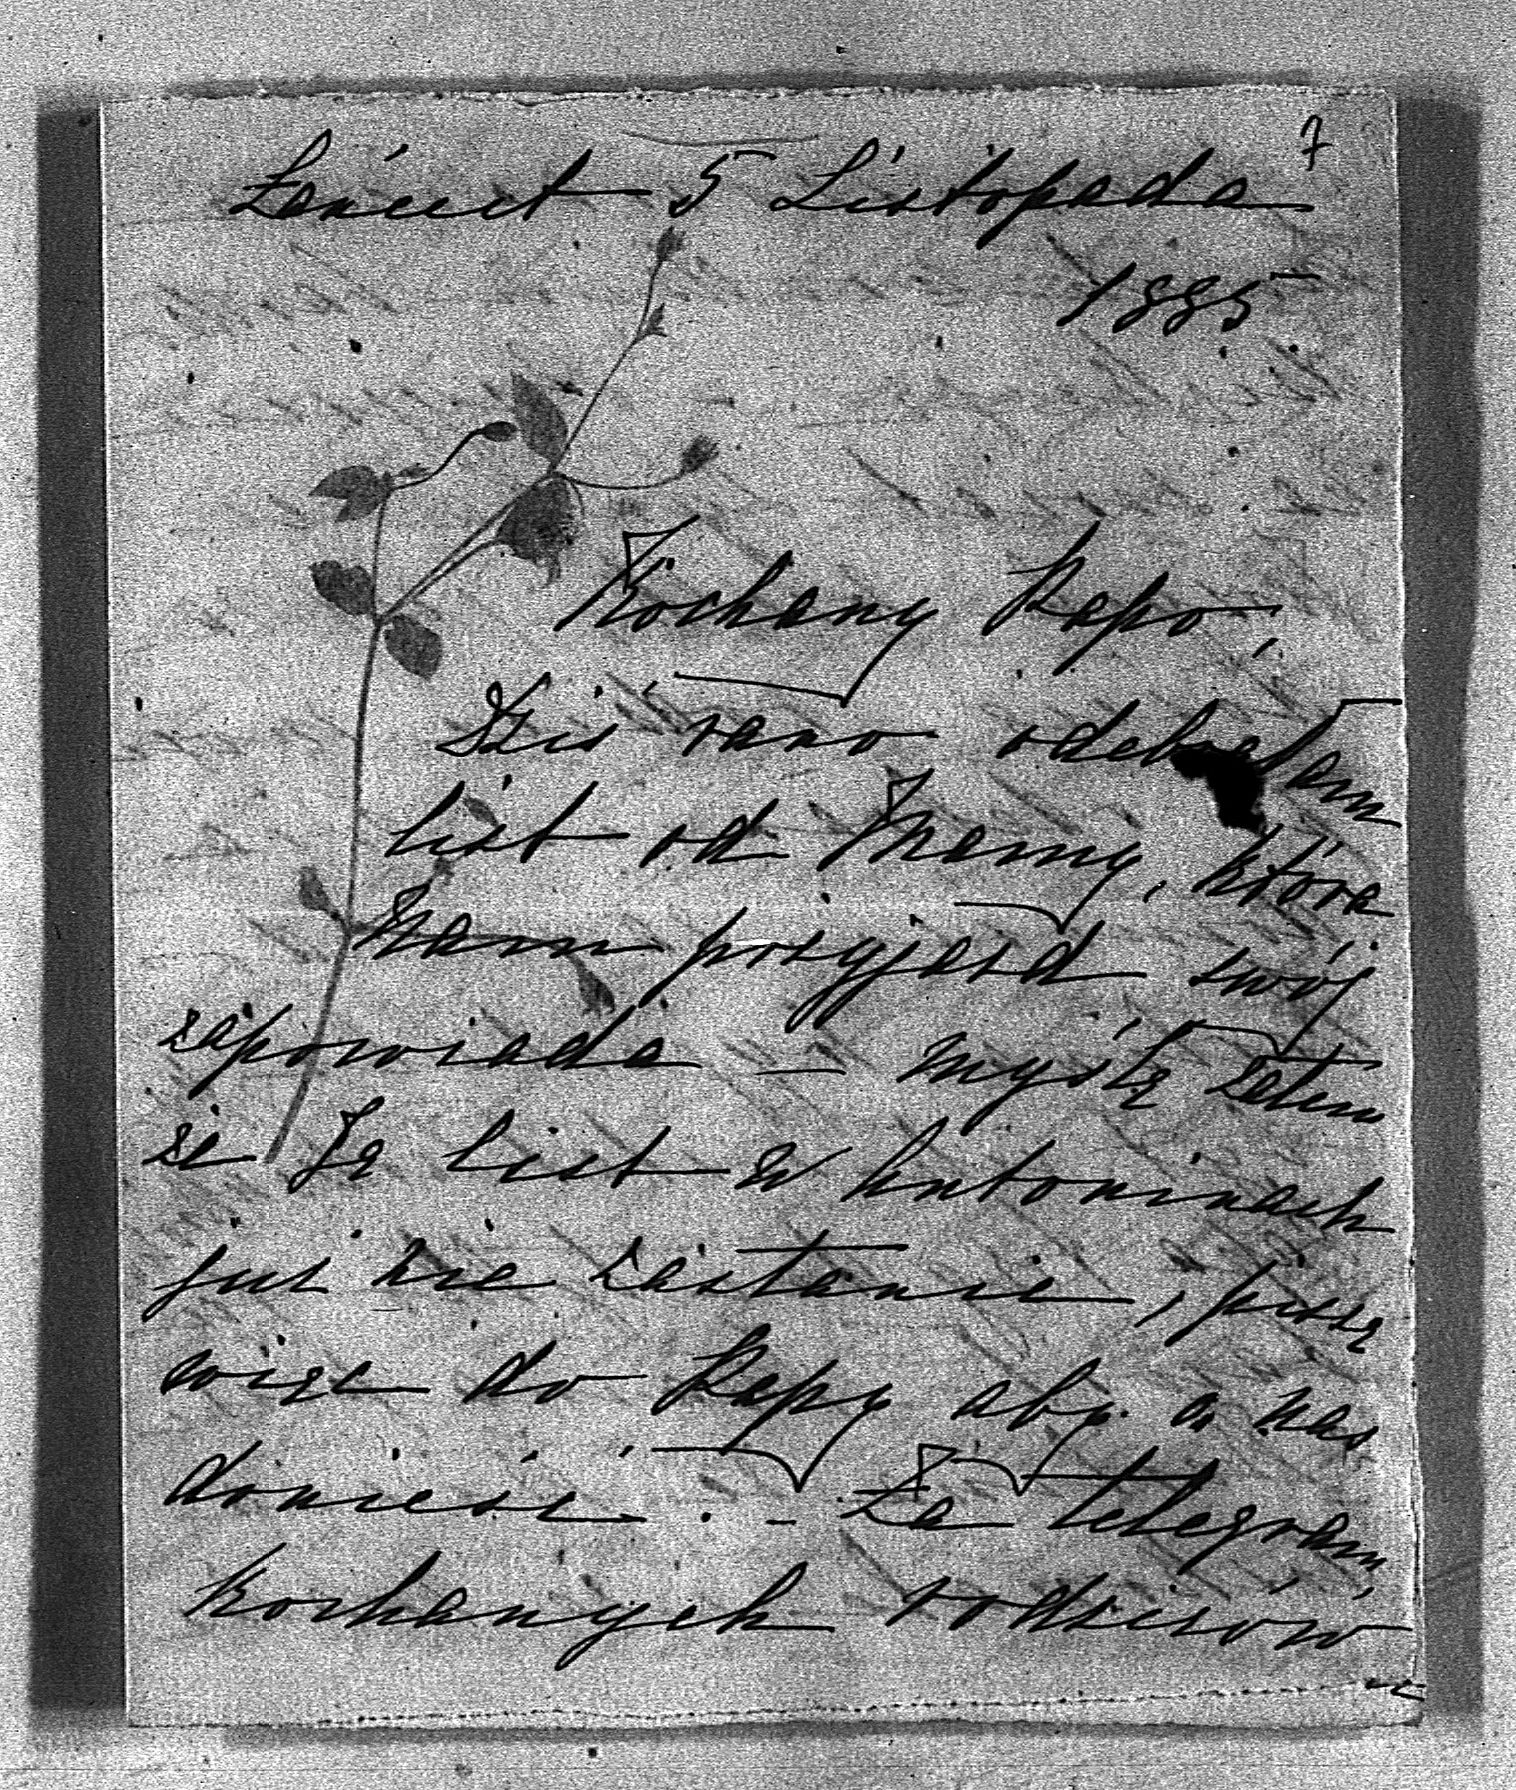 7
Łańcut 5 Listopada
1885
Kochany Papo,
Dziś rano odebrałam
list od Mamy, która
nam przyjazd swój
zapowiada — myślę zatem
że Ją list w Antoninach
już nie zastanie, piszę
więc do Papy aby o nas
donieść. — Za telegram
kochanych rodziców